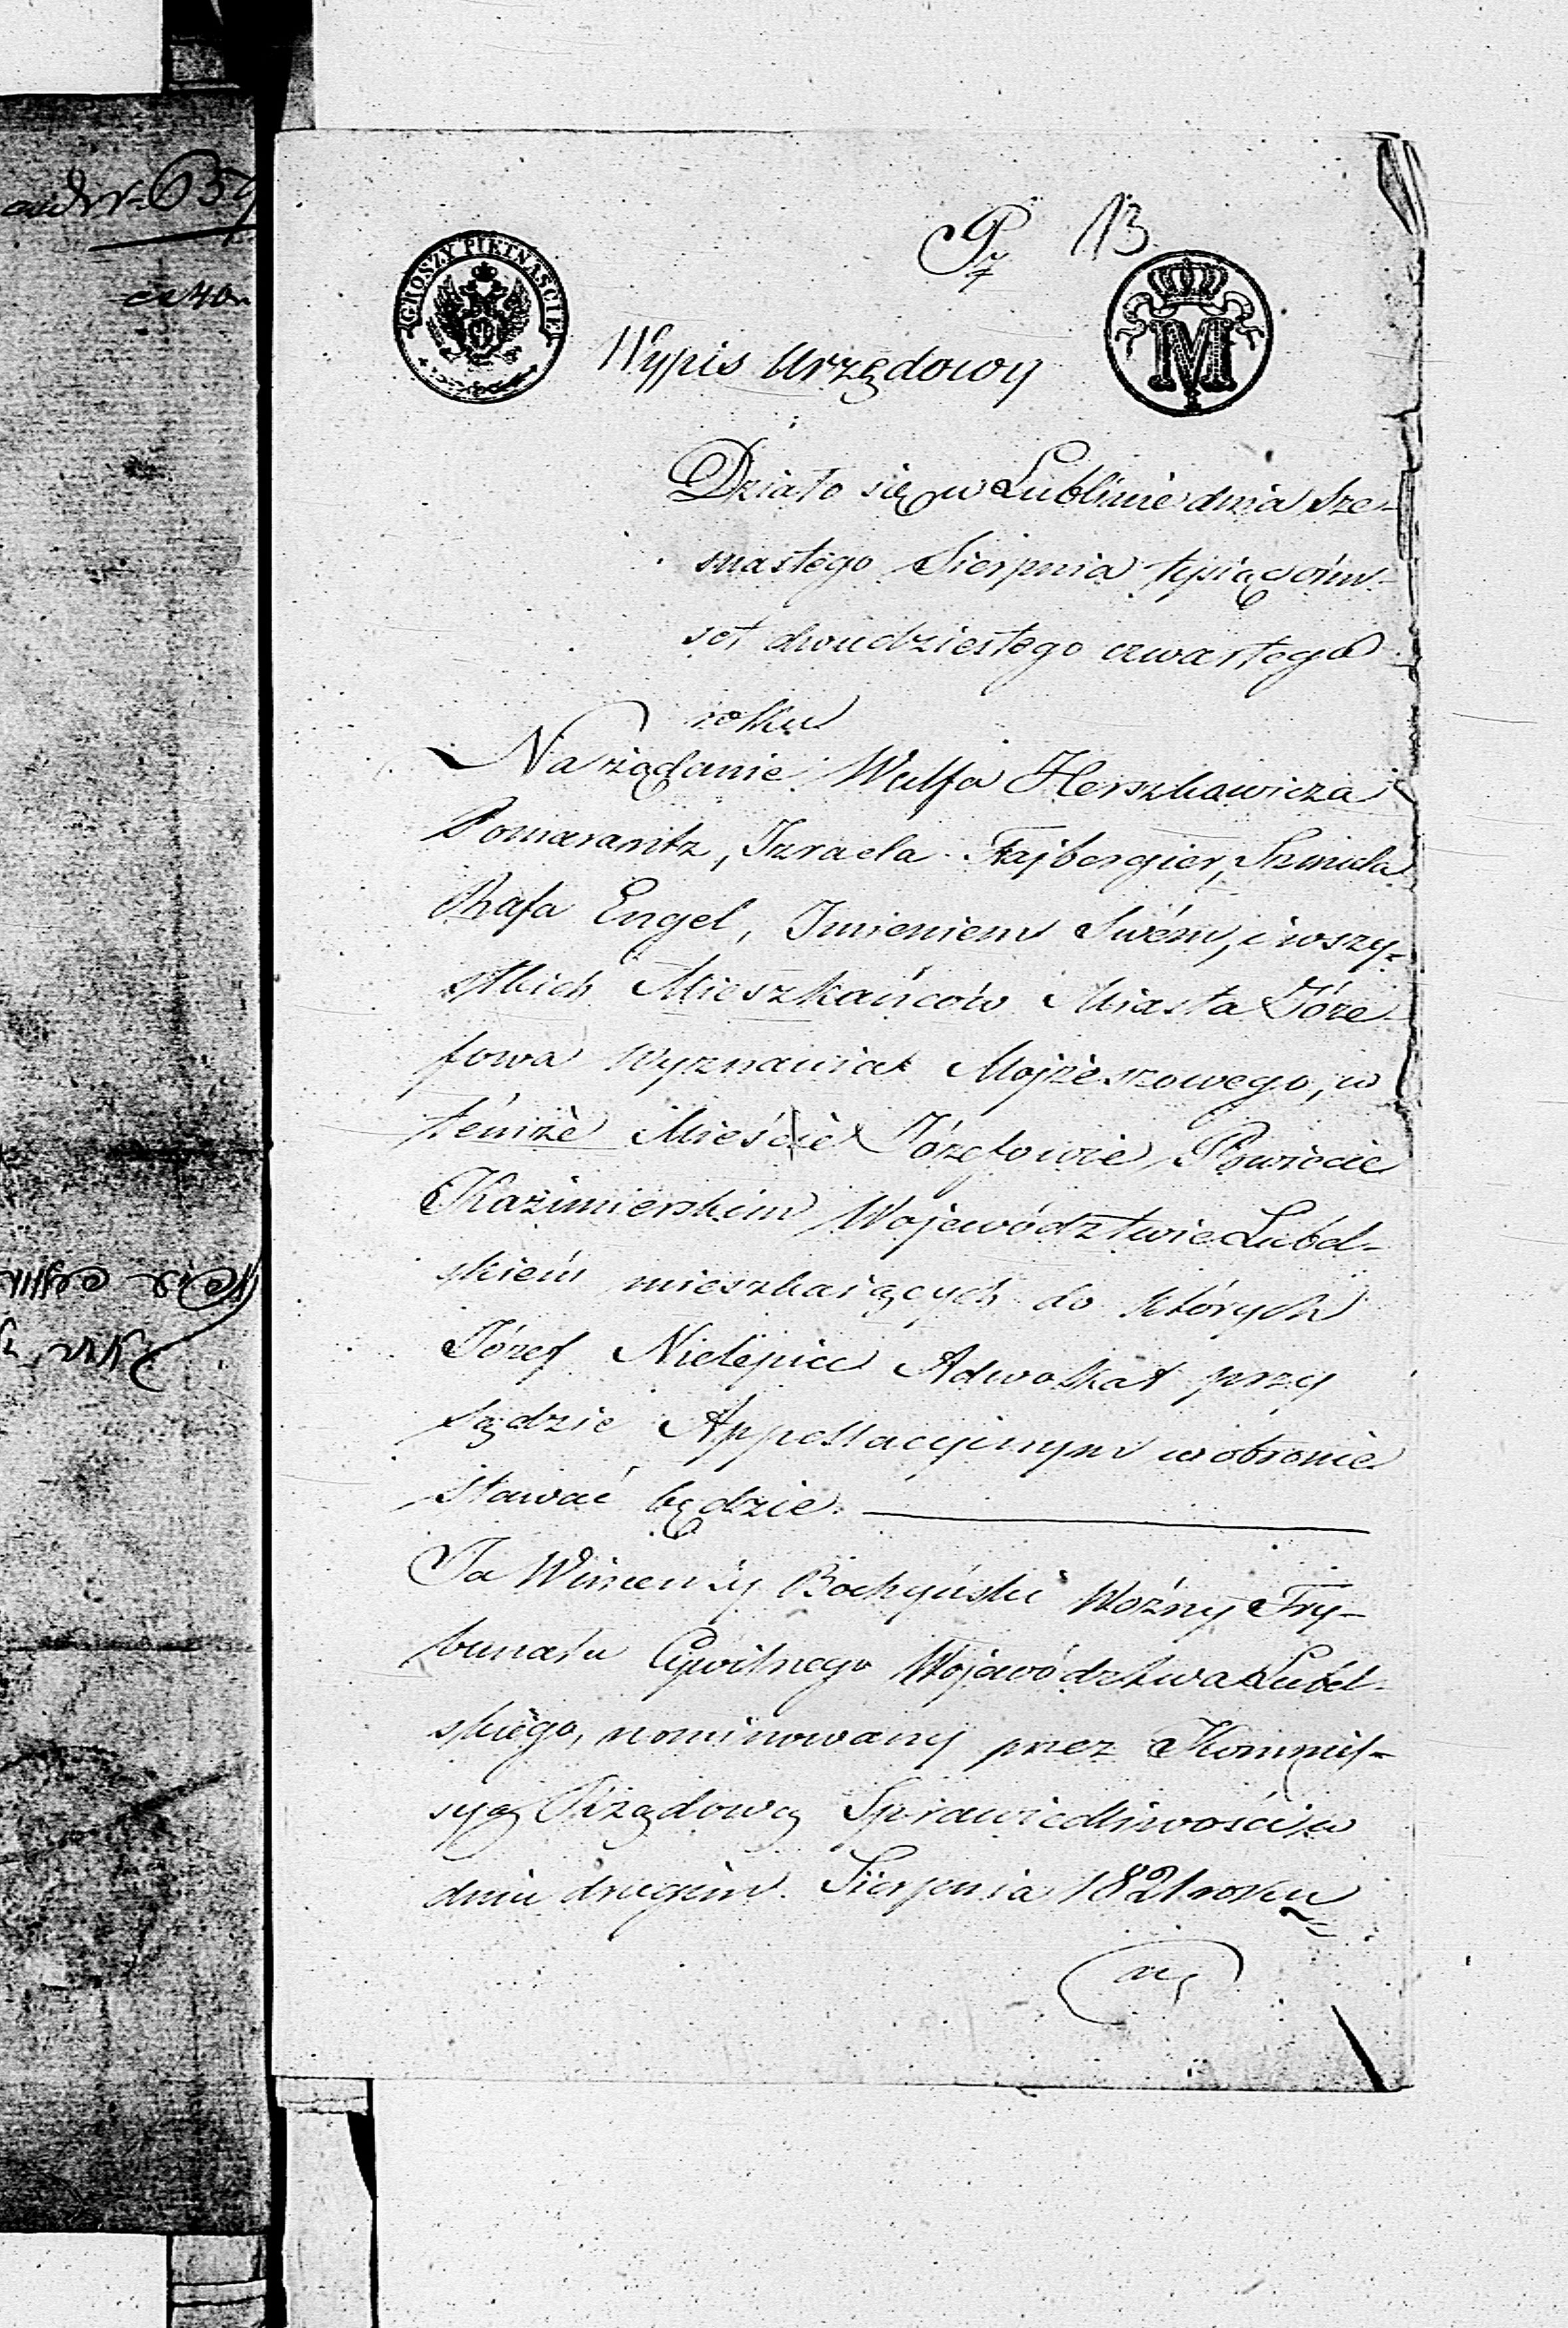 Pz 13
GROSZY PIETNAŚCIE
M
Wypis Urzędowy
Działo się w Lublinie dnia Sze-
snastego Sierpnia tysiąc óśm-
set dwudziestego czwartego
roku
Na rządanie Wulfa Herszkowicza
Pomarantz, Izraela Fajbergier, Szmula
Rafa Engel, Imieniem Swém, i wszy-
stkich Mieszkańców Miasta Józe-
fowa Wyznania Mojżeszowego, w
témże Mieście Józefowie, Powiecie
Kazimierskim Województwie Lubel-
skiem mieszkaiących do których
Józef Nielepiec Adwokat przy
Sądzie Appellacyinym w obronie
stawać będzie.
Ja Wincenty Bochyński Woźny Try-
bunału Cywilnego Województwa Lubel-
skiego, nominowany przez Kommis-
syą Rządową Sprawiedliwości, w
dniu drugim Sierpnia 1821 roku